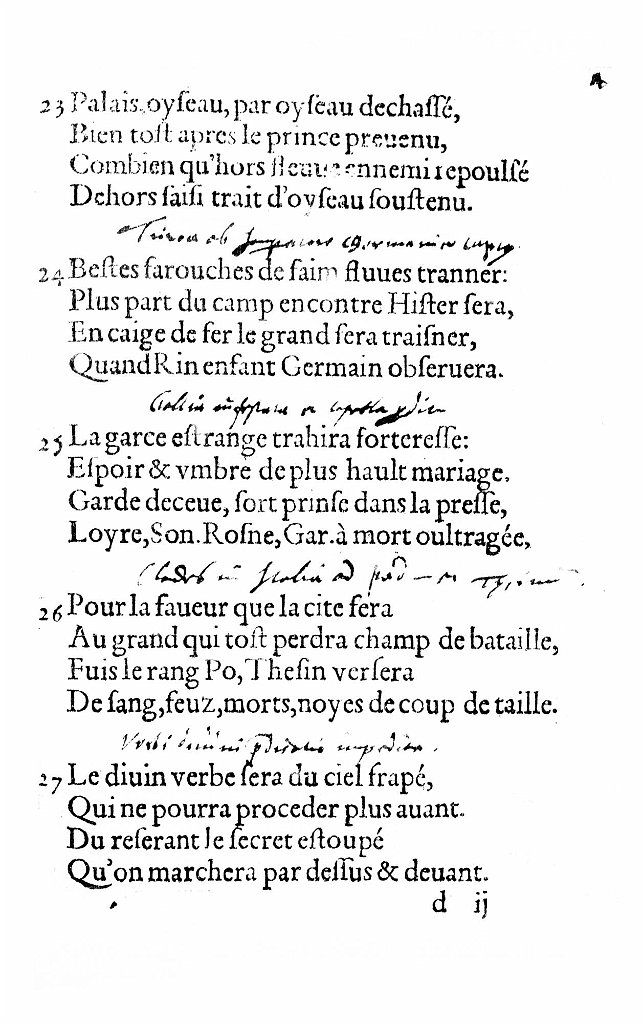 23 Palais, oyſeau, par oyſeau dechaſſé,
Bien toſt apres le prince preuenu,
Combien qu'hors fleuue ennemi repoulſé
Dehors ſaiſi trait d'oyſeau ſouſtenu.
24 Beſtes farouches de faim fluues tranner:
Plus part du camp encontre Hiſter ſera,
En caige de fer le grand ſera traiſner,
Quand Rin enfant Germain obſeruera.
25 La garce eſtrange trahira fortereſſe:
Eſpoir & vmbre de plus hault mariage,
Garde deceue, fort prinſe dans la preſſe,
Loyre, Son. Roſne, Gar. à mort oultragée,
Clades in Italia ad
26 Pour la faueur que la cite fera
Au grand qui toſt perdra champ de bataille,
Fuis le rang Po, Theſin verſera
De ſang, feuz, morts, noyes de coup de taille.
27 Le diuin verbe ſera du ciel frapé,
Qui ne pourra proceder plus auant.
Du reſerant le ſecret eſtoupé
Qu'on marchera par deſſus & deuant.
d ij